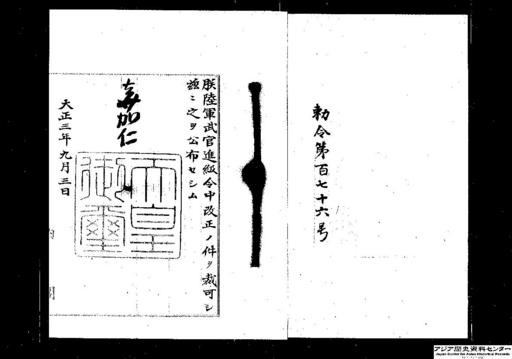 勅令第百七十六号
朕陸軍武官進級令中改正ノ件ヲ裁可シ
茲ニ之ヲ公布セシム
嘉仁
天皇御璽
大正三年九月三日
内閣
アジア歴史資料センター
Japan Center for Asian Historical Records